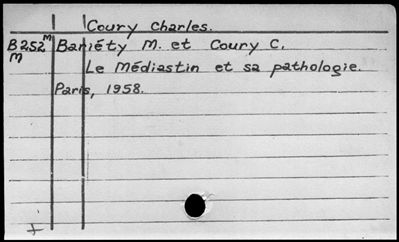 Coury Charles.
B252 M Bariéty M. et Coury C.
M
Le Médiastin et sa pathologie.
Paris, 1958.